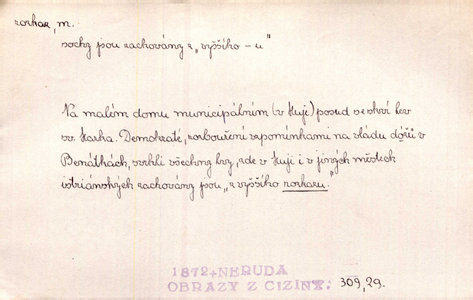 rozkaz, m.
sochy jsou zachovány z „vyššího – u"
Na malém domu municipálním (v Huji) posud se skví lev
sv. Marka. Demokraté, rozbouření vzpomínkami na vládu dožů v
Benátkách, svrhli všechny lvy, zde v Huji i v jiných městech
istriánských zachovány jsou „z vyššího rozkazu."
1872 NERUDA
OBRAZY Z CIZINY: 309, 29.